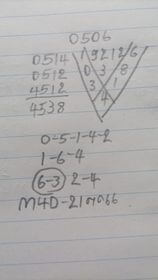 0506
0514 19212/6
0512 0 3 8
4512 3 1
4538 4
0-5-1-4-2
1-6-4
6-3 2-4
M4D-21